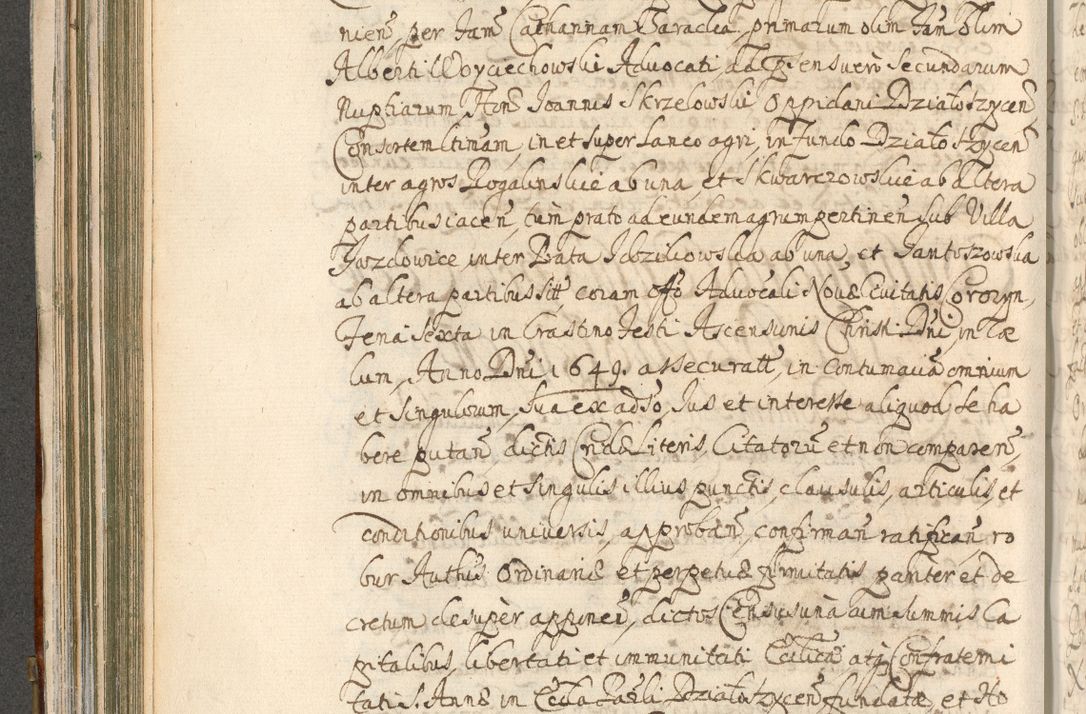 nien̄, per Jam̄ Catharinam Baraclea, primarum olim Jan̄ Olim
Alberti Woyciechowski Advocati, ad p̄sens vero Secundarum
Nuptiarum, Hon̄ Joannis Skrzelowski Oppidani Działoszycen̄
Consortem ltinam, in et super Laneo agri, in fundo Działoszycen̄
inter agros Rogalinskie ab una, et Skwarczowskie ab altera
partibus iacen̄, tum prato ad eundem agrum pertinen̄ sub Villa
Jazdowice, inter Prata Idzikowska ab una, et Jantoszowska
ab altera partibus sitt̄ coram offo Advocali Novæ Civitatis Corczyn,
Feria sexta in Crastino festi Ascensionis Christi Dn̄i, in Cæ
lum, Anno Dn̄i 1649. assecuratt̄, in contumaciā omnium
et singulorum, sua ex adso, Jus et interesse aliquod, se ha
bere putan̄ dictis Cridæ Literis, Citatorū et non comparen̄,
in omnibus et singulis illius punctis, clausulis, articulis, et
conditionibus universis, approban̄, confirman̄ ratifican̄, ro
bur Authūs Ordinariæ et perpetuæ firmitatis pariter et de
cretum desuper apponeñ, dictos Census una cum summis Ca
pitalibus, libertati et immunitati Eccliæ atq̄ Confraterni
tati S. Annæ in Eccla Paēli Działoszycen̄ fundatæ, et Ho